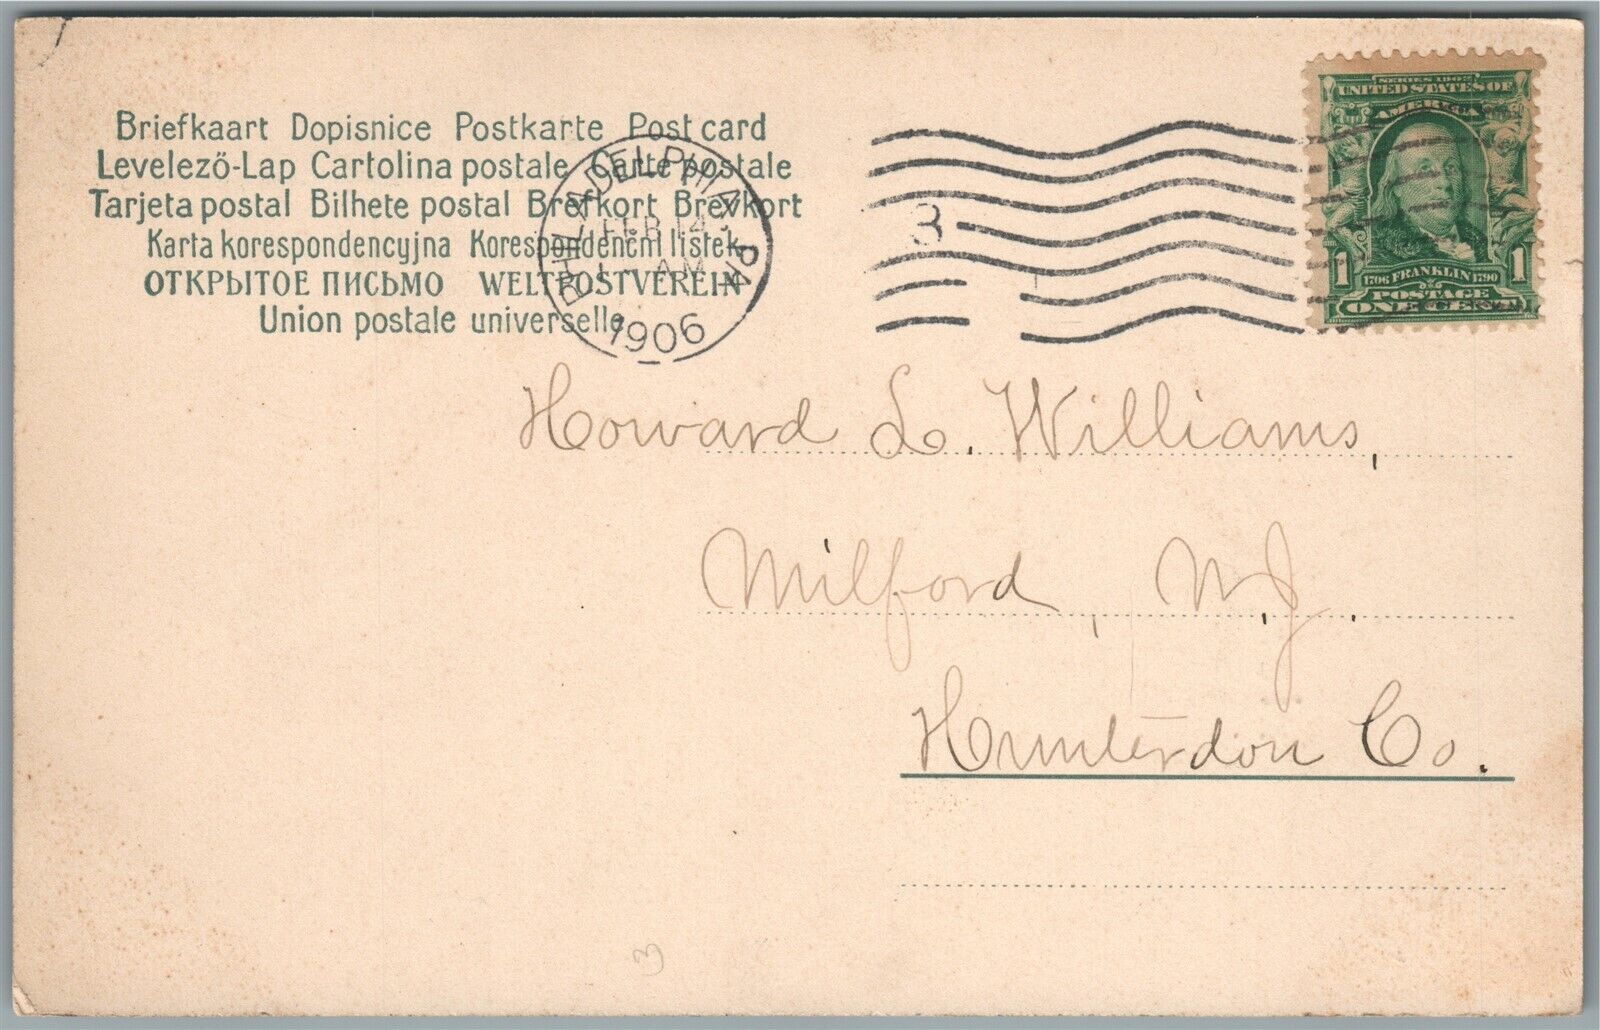 Briefkaart Dopisnice Postkarte Post card
Levelező-Lap Cartolina postale Carte postale
Tarjeta postal Bilhete postal Brefkort Brevkort
Karta korespondencyjna Korespondenční listek
ОТКРЫТОЕ ПИСЬМО WELTPOSTVEREIN
Union postale universelle
PHILADELPHIA, PA.
FEB 14
AM
1906
3
SERIES 1902
UNITED STATES OF
AMERICA
1 1706 FRANKLIN 1790 1
POSTAGE
ONE CENT
Howard L. Williams,
Milford, N.J.
Hunterdon Co.
3